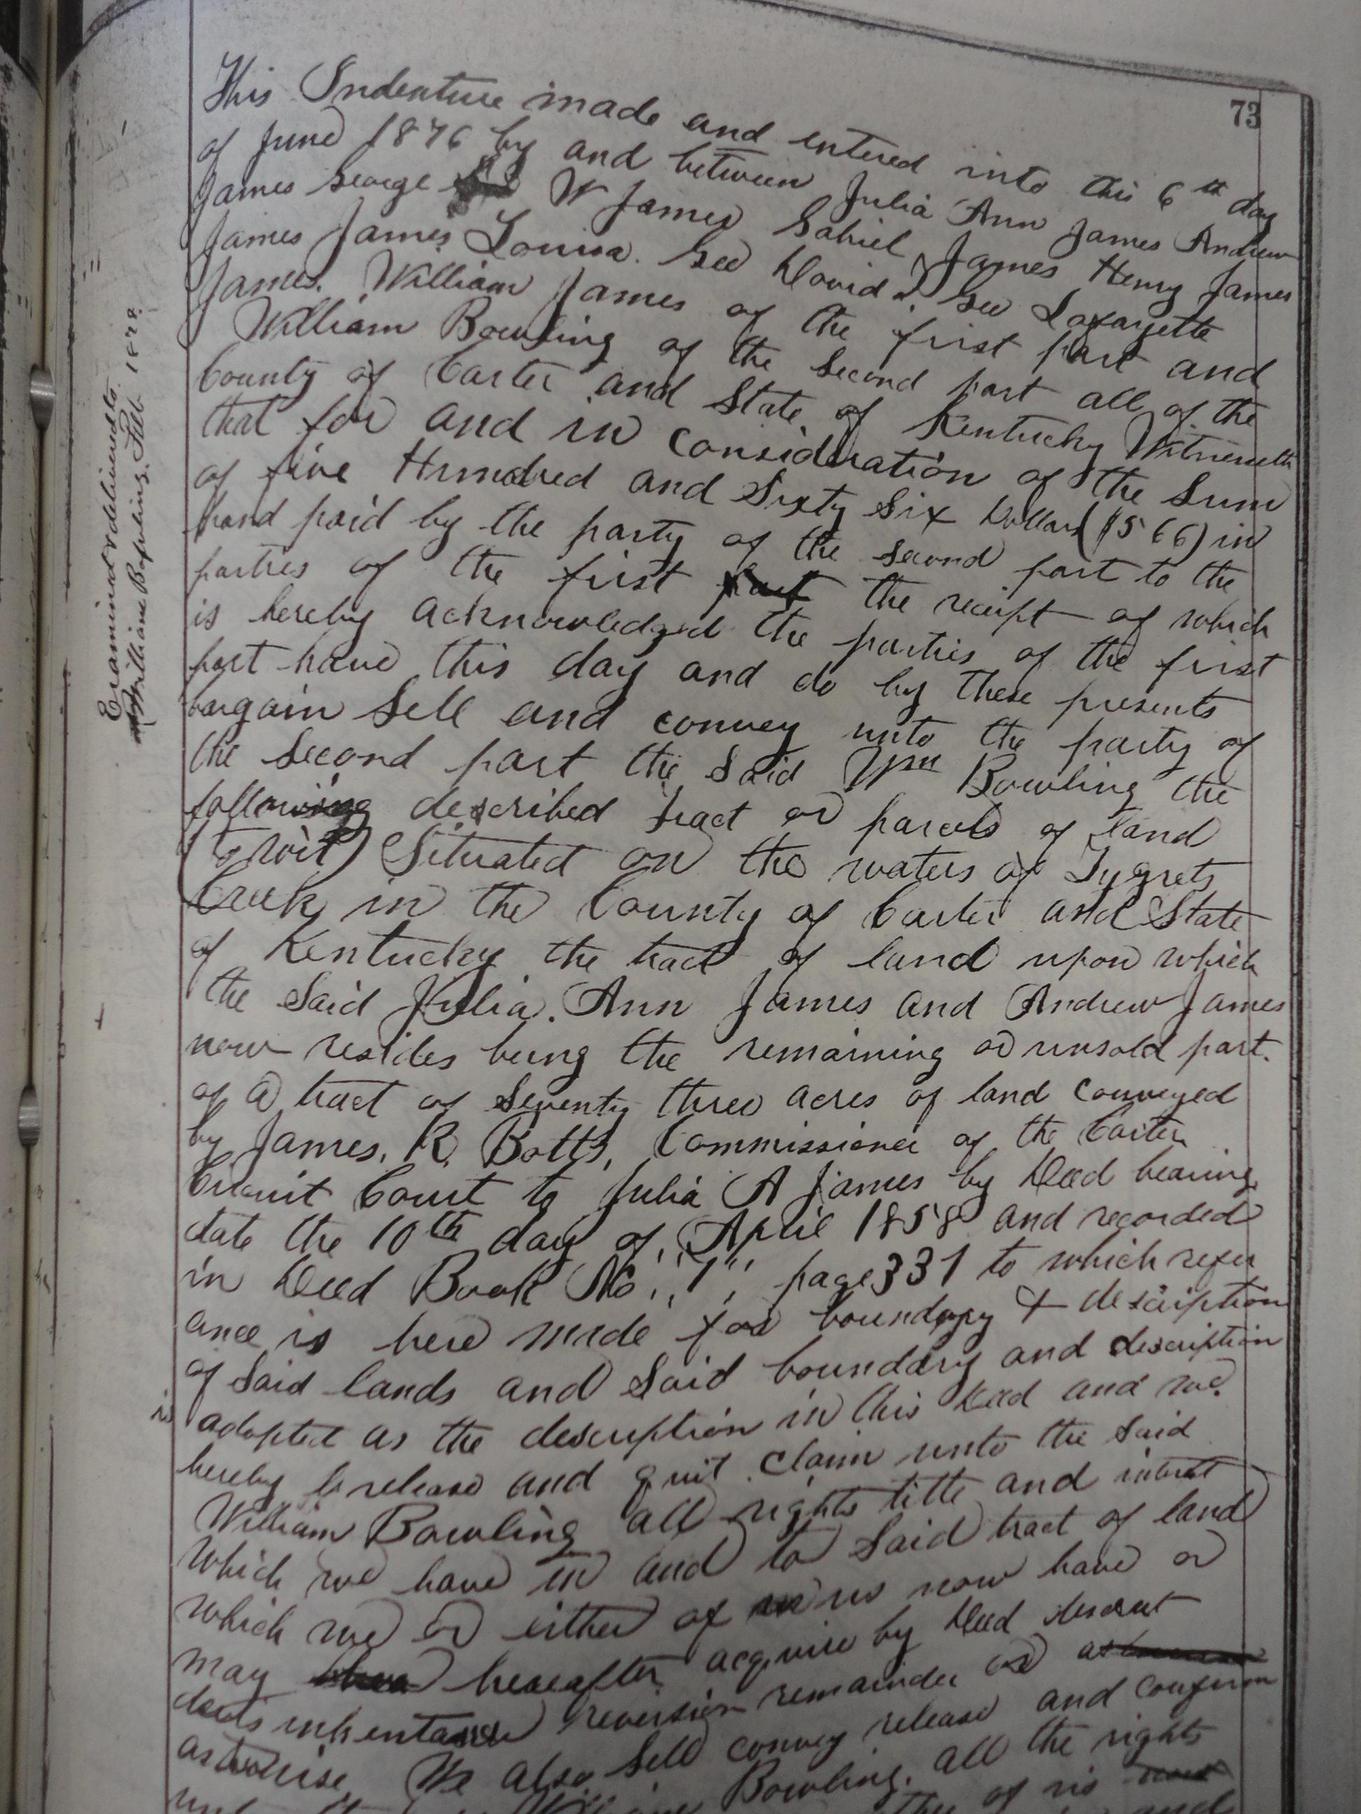 73
This Indenture made and entered into this 6th day
of June 1876 by and between Julia Ann James Andrew
James George W James Gabriel James Henry James
James James Louisa Gee David Gee Lafayette
James. William James of the first part and
William Bowling of the second part all of the
County of Carter and State of Kentucky Witnesseth
that for and in consideration of the Sum
of five Hundred and Sixty Six Dollars ($566) in
hand paid by the party of the second part to the
parties of the first part the receipt of which
is hereby acknowledged the parties of the first
part have this day and do by these presents
bargain Sell and convey unto the party of
the Second part the Said Wm Bowling the
following described tract or parcels of land
(towit) Situated on the waters of Tygrets
Creek in the County of Carter and State
of Kentucky the tract of land upon which
the Said Julia. Ann James and Andrew James
now resides being the remaining or unsold part.
of a tract of Seventy three acres of land conveyed
by James. R. Botts, Commissioner of the Carter
Circuit Court to Julia A James by Deed bearing
date the 10th day of April 1858 and recorded
in Deed Book No "1" page 331 to which refer
ance is here made for boundary & description
of Said lands and Said boundary and description
is adopted as the description in this Deed and we
hereby release and quit claim unto the Said
William Bowling all rights title and interest
which we have in and to Said tract of land
which we or either of us now have or
may hereafter acquire by Deed descent
reversion remainder or
We also Sell convey release and confirm
Bowling. all the rights
of
Examined & delivered to
William Bowling. Feb.